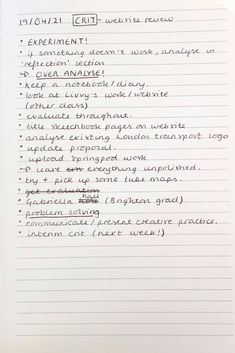 19/04/21 CRIT - website review
• EXPERIMENT!
• if something doesn't work, analyse in
'reflection' section
→ OVER ANALYSE!
• keep a notebook/diary.
• look at Livvy's work/website
(other class)
• evaluate throughout.
• title sketchbook pages on website
• analyse existing London transport logo
• update proposal.
• upload Springpod work
→ leave everything unpolished.
• try + pick up some tube maps.
• get evaluation
• Gabriella hall (Brighton grad)
• problem solving
• communicate/present creative practice.
• interim crit (next week!)